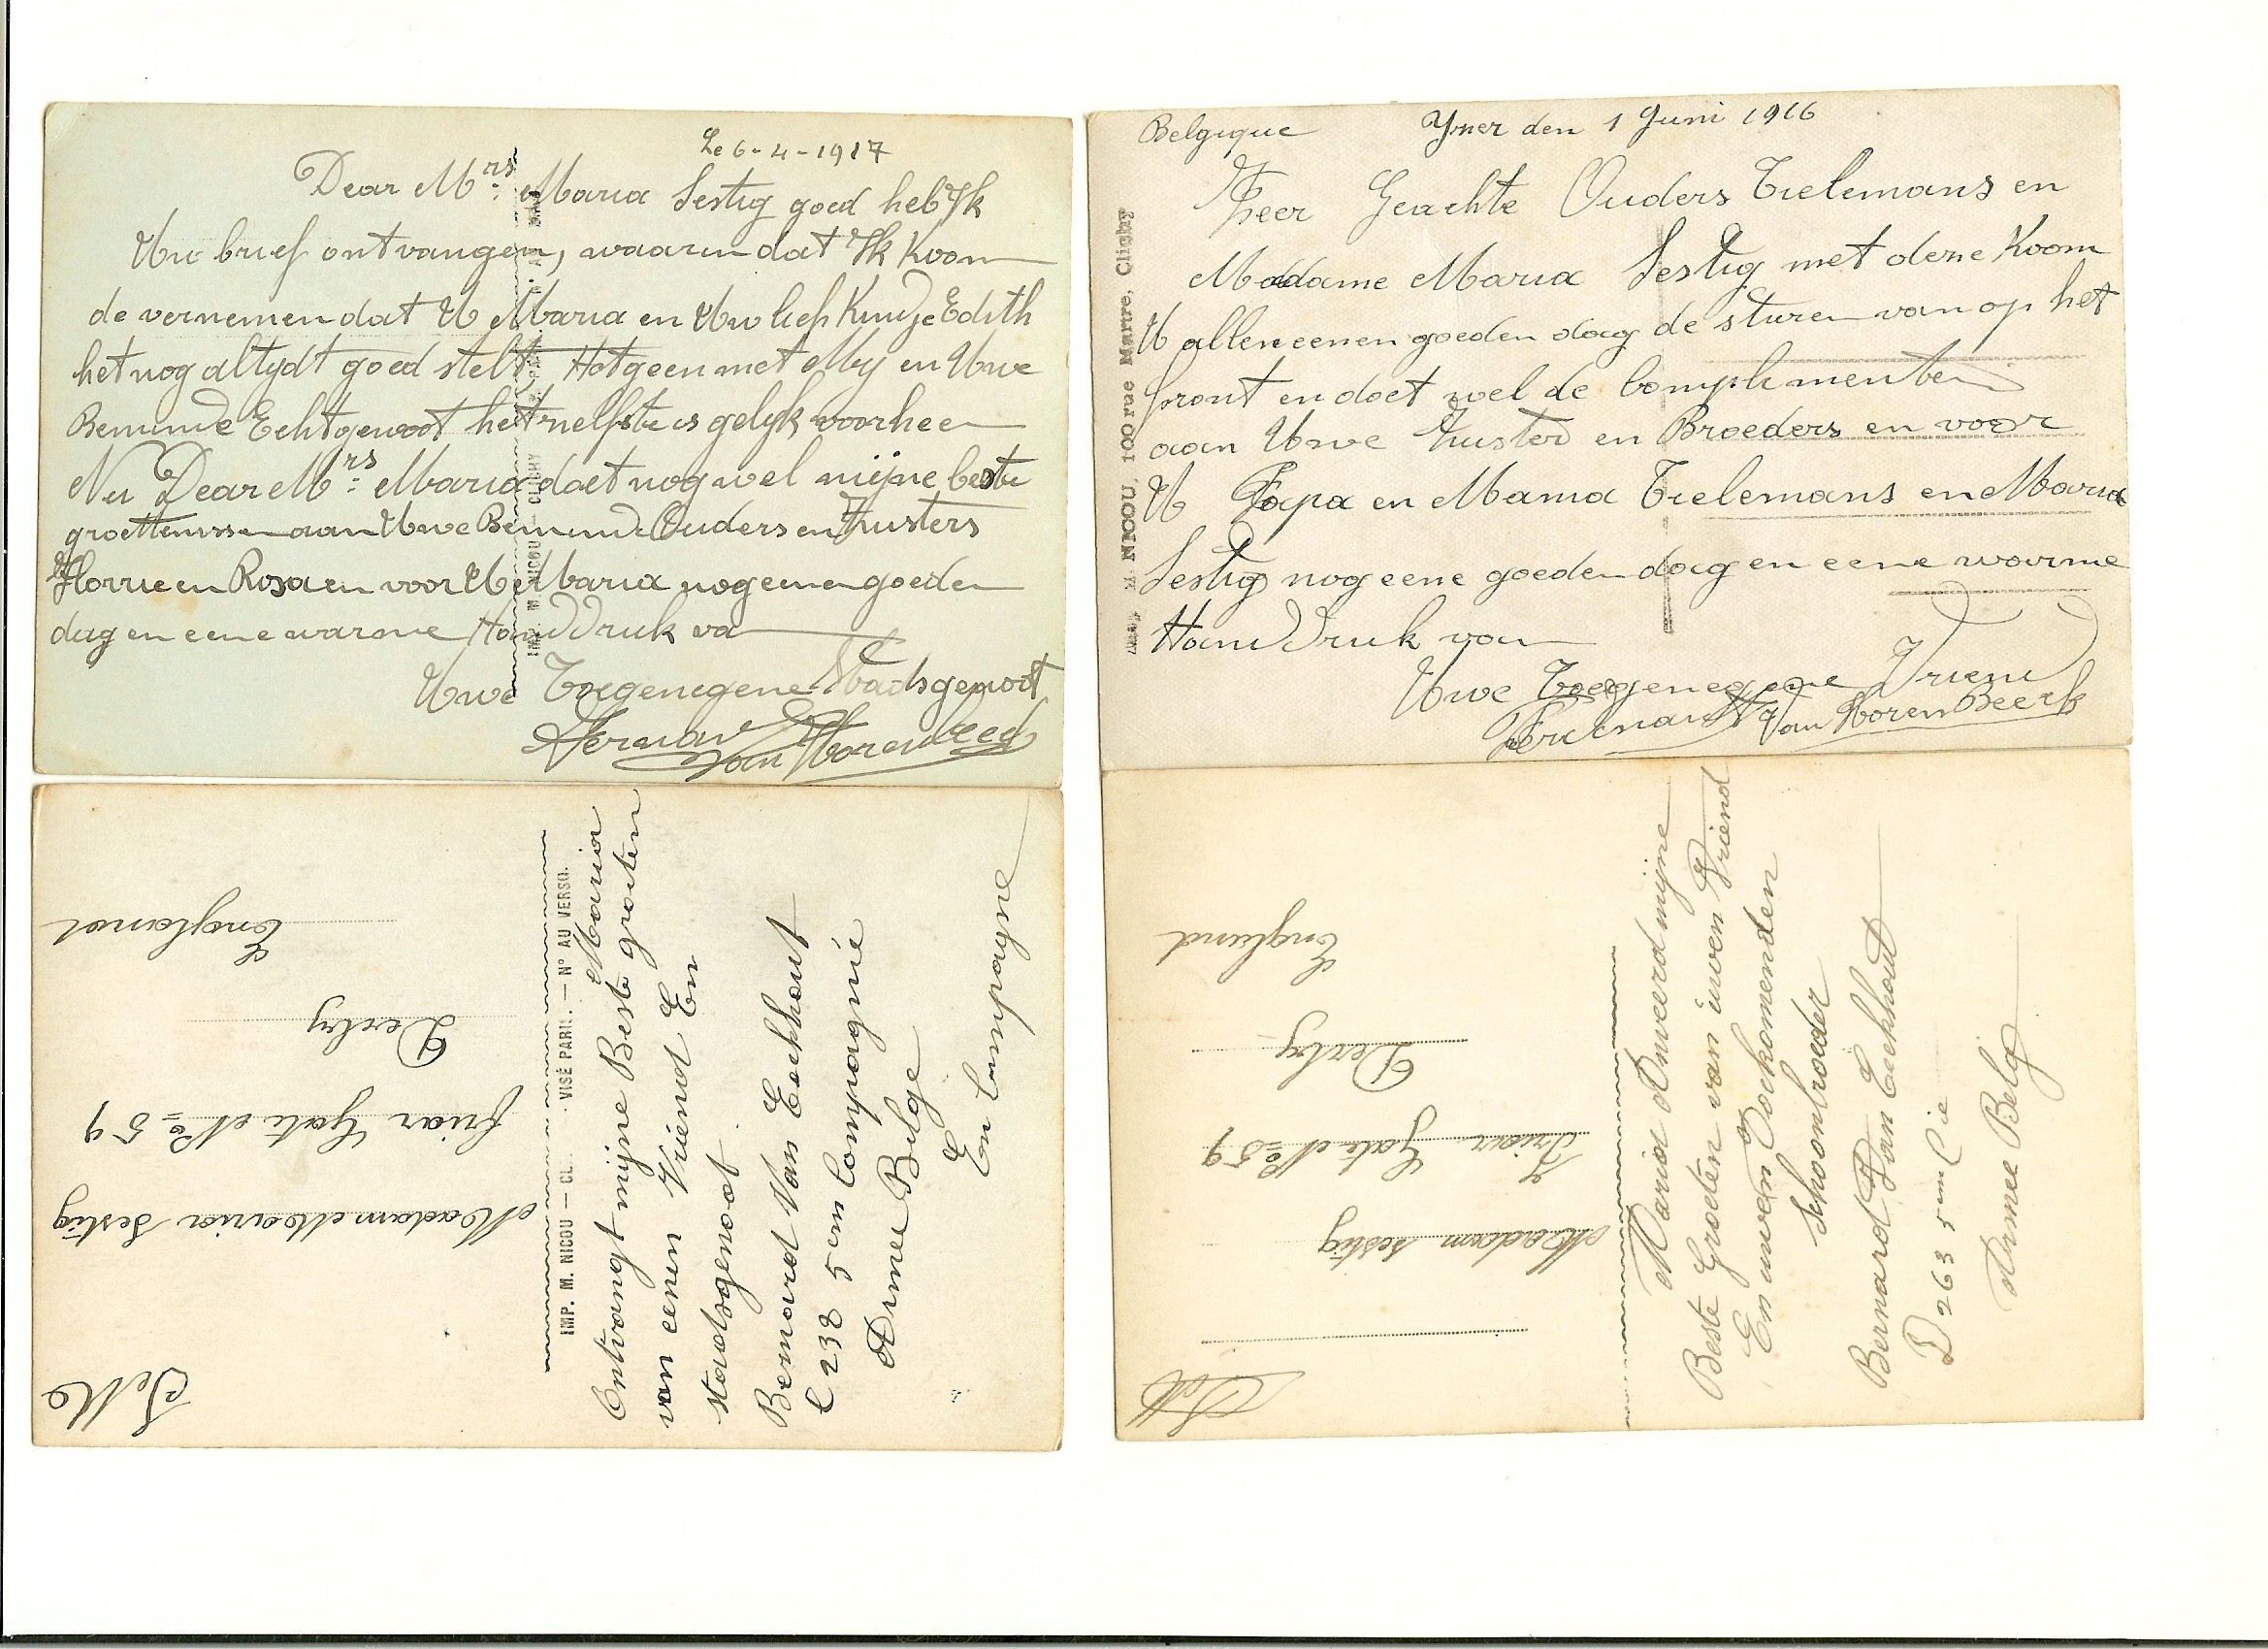 Le 6-4-1917
Dear Mrs: Maria Sestig goed heb Ik
Uw brief ontvangen, waarin dat Ik Koom
de vernemen dat U Maria en Uw lief Kindje Edith
het nog altydt goed stelt, Hetgeen met My en Uwe
Beminde Echtgenoot het zelfste is gelyk voorheen
Nu Dear Mrs: Maria doet nog wel mijne beste
groettenissen aan Uwe Beminde Ouders en Zusters
Florrie en Rosa en voor U Maria nog eenen goeden
dag en eene warme HandDruk van
Uwe Toegenegene Stadsgenoot
Van Horenbeeck
IMP. M. NICOU — CLICHY
Belgique Yser den 1 Juni 1916
Zeer Geachte Ouders Tielemans en
Madame Maria Sestig met deze Koom
U allen eenen goeden dag de sturen van op het
front en doet wel de Complimenten
aan Uwe Zuster en Broeders en voor
U Papa en Mama Tielemans en Maria
Sestig nog eene goeden dag en eene warme
HandDruk van
Uwe Toegenegene Vriend
Van HorenBeeck
M. NICOU, 100 rue Martre, Clichy
Madam Maria Sestig
friar Gate No 59
Derby
England
IMP. M. NICOU — CL. · VISÉ PARIS. — N° AU VERSO.
Maria
Ontvangt mijne Beste groeten
van eenen Vriend En
stadsgenoot
Bernard Van Eeckhout
C 238 5em Compagnie
Armee Belge
En Campagne
Madam Sestig
Friar Gate No 59
Derby
England
Maria Anveerd mijne
Beste Groeten van uwen Vriend
En uwen Toekomenden
schoonbroeder
Bernard Van Eeckhout
D 263 5em Cie
Armee Belg